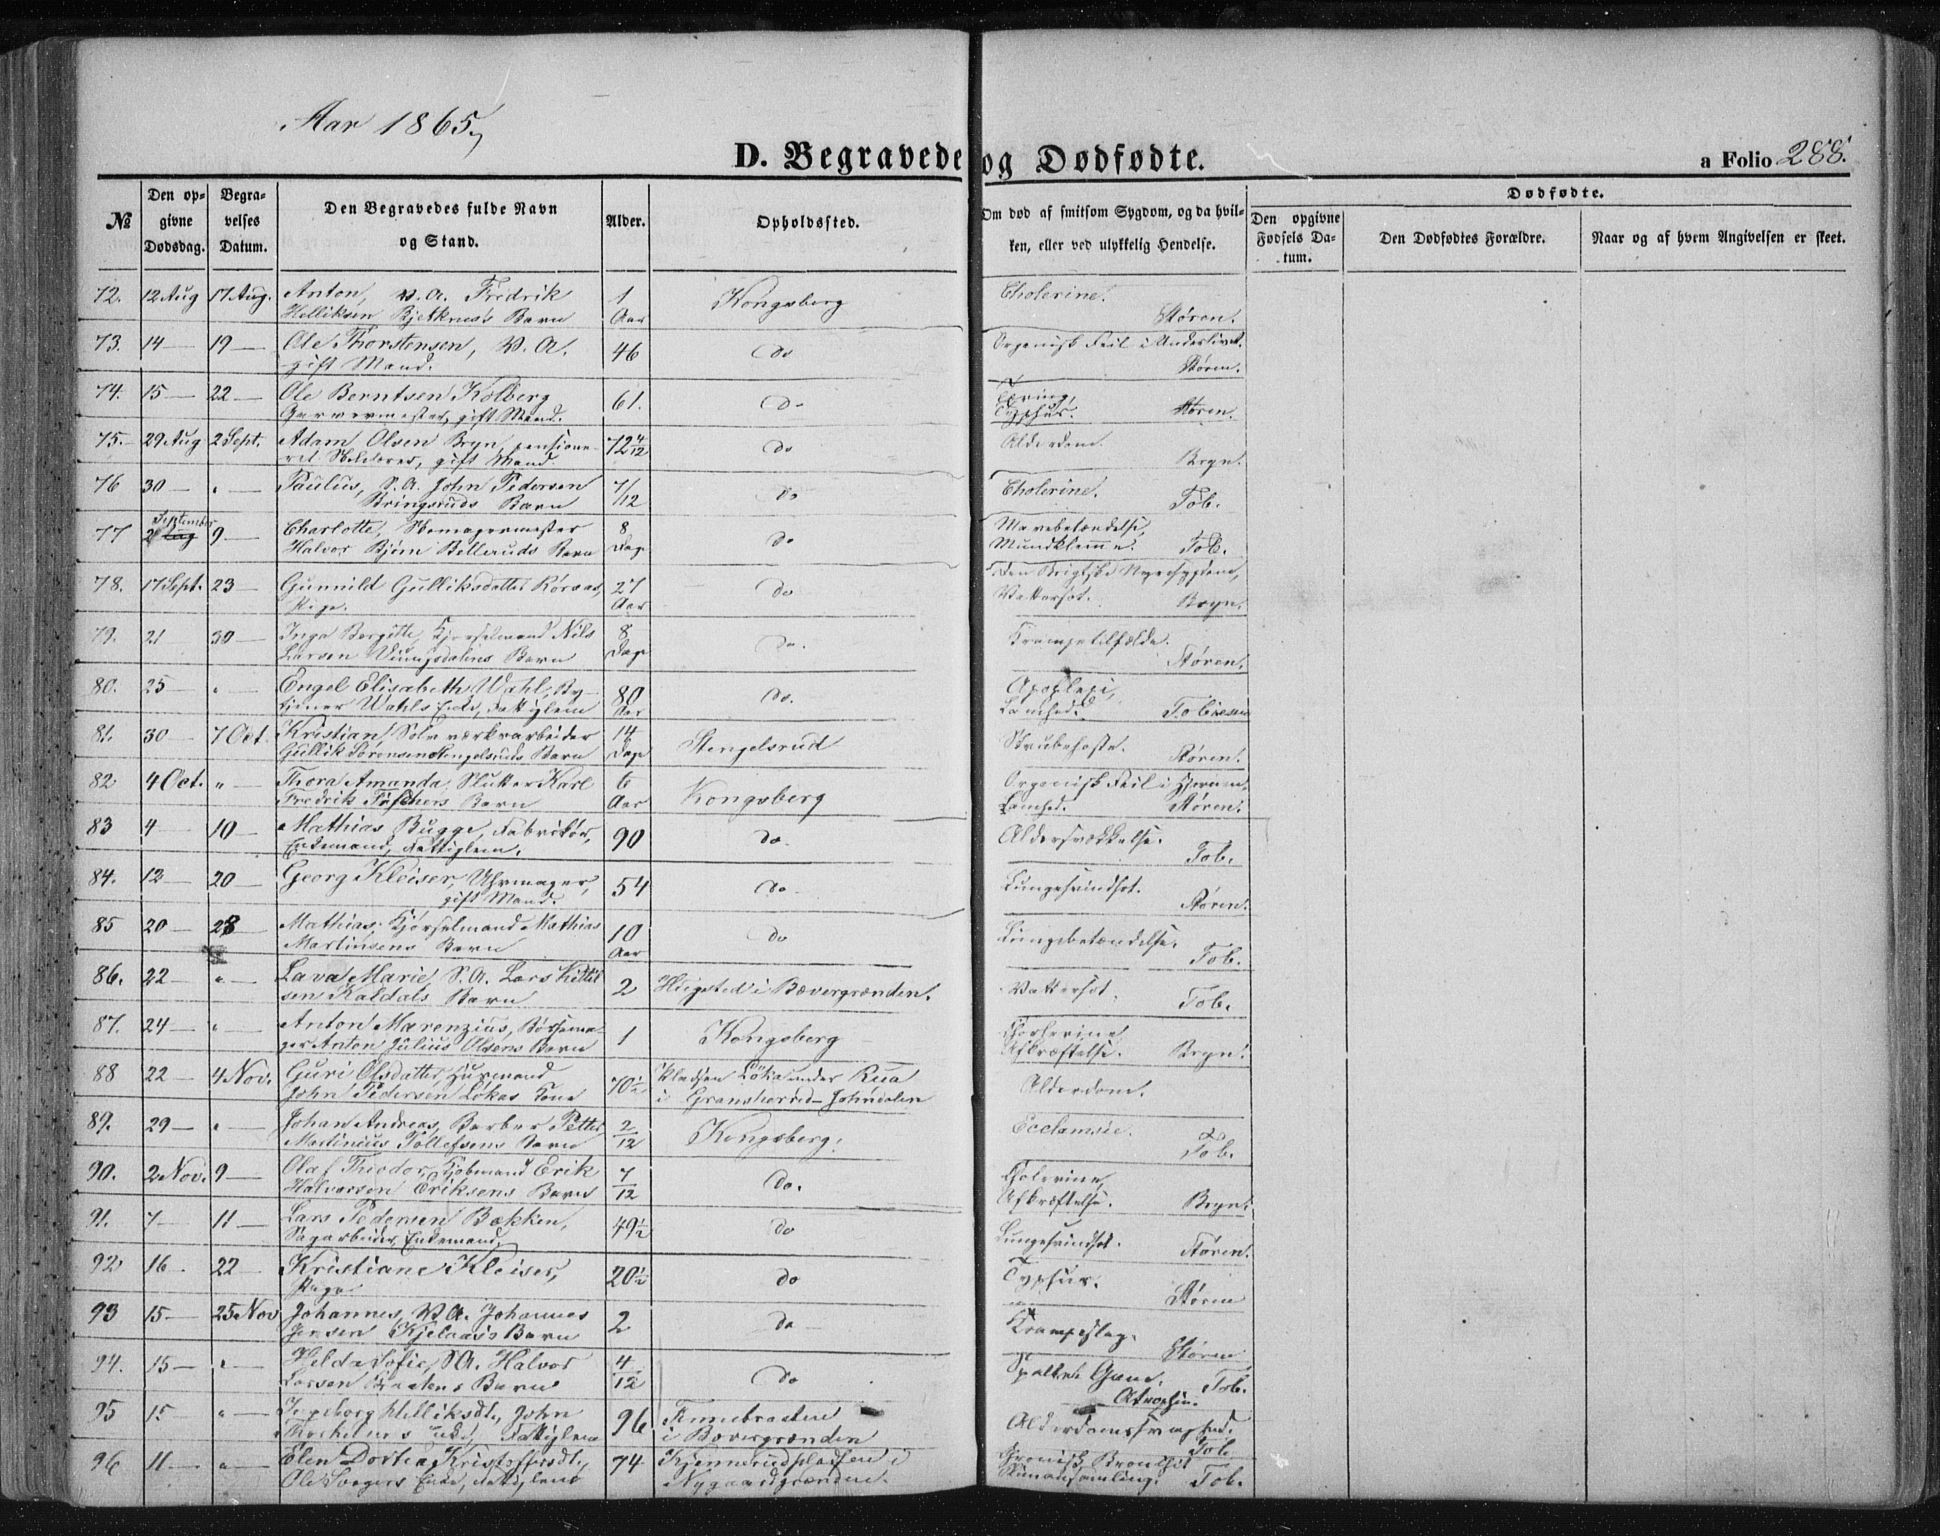 Aar 1865,
D. Begravede og Dødfødte.
a Folio 288.
№ Den opgivne Dødsdag. Begravelses Datum. Den Begravedes fulde Navn og Stand. Alder. Opholdssted. Om død af smitsom Sygdom, og da hvilken, eller ved ulykkelig Hendelse. Dødfødte. Den opgivne Fødsels Datum. Den Dødfødtes Forældre. Naar og af hvem Angivelsen er skeet.
72. 12 Aug 17 Aug. Anton, V.A. Fredrik 1 Kongsberg Cholerine.
Helliksen Bjerknes's Barn Aar Støren.
73. 14 — 19 — Ole Thorstensen, V.A. 46 do Organisk Feil i Underlivet.
gift Mand. Støren.
74. 15 — 22 — Ole Berntsen Kolberg 61. do
Garvermester, gift Mand. Typhus. Støren.
75. 29 Aug 2 Sept. Adam Olsen Bryn, pensione- 72 4/12 do Alderdom.
ret gift Mand Bryn.
76 30 — " — Paulus, S.A. John Pedersen 7/12 do Cholerine.
Bringsruds Barn Tob.
77 September
2 Aug 9 — Charlotte, Skomagermester 8 do Mavebetændelse,
Halvor Bjørn Bolleruds Barn Dage Mundklemme. Tob.
78. 17 Sept. 23 — Gunnild Gulliksdatter Koraas, 27 do Den Brigtske Nyresygdom,
Pige. Aar Vattersot. Bryn.
79. 21 30 — Inga Bergitte, Kjørselmand Nils 8 do. Krampetilfælde.
Larsen Barn Dage Støren.
80. 25 — " — Engel Elisabeth Wahl, By- 80 do. Apoplexi,
tiener Wahls Enke, Fattiglem Aar Lamhed. Tobiesen
81. 30 — 7 Oct. Kristian, Sølvværksarbeider 14 Stengelsrud Strubehoste.
Gullik Sørensen Stengelsruds Barn Dage Støren.
82 4 Oct. " — Thora Amanda, Slutter Karl 6 Kongsberg Organisk Feil i Hjernen.
Fredrik Fischers Barn Aar Lamhed. Støren.
83 4 — 10 — Mathias Bugge, Fabrikør, 90 do Aldersvækkelse.
Enkemand, Fattiglem. Tob.
84. 12 — 20 — Georg Kleiser, Uhrmager, 54 do Lungesvindsot.
gift Mand. Støren.
85 20 — 28 Mathias, Kjørselmand Mathias 10 do Lungebetændelse.
Martinsens Barn Aar Tob.
86. 22 — " — Lava Marie, S.A. Lars Kittil 2 i Bævergrænden. Vattersot.
sen Kaldals Barn Tob.
87. 24 — " — Anton Marenzius, Børsema- 1 Kongsberg Cholerine,
ger Anton Julius Olsens Barn Afkræftelse. Bryn.
88 22 — 4 Nov. Guri Olsdatter, Huusmand 70 1/2 Pladsen Løka under Rua Alderdom.
John Pedersen Løkas Kone i Gransherred – Johndalen
89. 29 — " — Johan Andreas, Barber Petter 2/12 Kongsberg. Ecclamsie.
Martinius Tollefsens Barn Tob.
90. 2 Nov. 9 — Olaf Theodor, Kjøbmand Erik 7/12 do. Cholerine,
Halvorsen Eriksens Barn Afkræftelse. Bryn.
91. 7 — 11 — Lars Pedersen Bækken, 49 1/2 do Lungesvindsot.
Sagarbeider, Enkemand, Støren.
92 16. 22 — Kristiane Kleiser, 20 1/2 do Typhus.
Pige Støren
93 15 — 25 Nov Johannes, V.A. Johannes 2 do Krampeslag.
Jensen Kjelaas's Barn Støren
94. 15 — " — Helda Sofie, S.A. Halvor 4/12 do Spaltet Gane,
Larsen Barn Atrophie. Tob.
95 15 " — Ingeborg Helliksdt., John 96 Tennebraaten Alderdomssvaghed.
Fattiglem i Bævergrænden Tob.
96 11 — " — Elen Dortea Kristoffersdt., 74 Kjennerudpladsen i Chronisk Bronchit
Ole Enke, Fattiglem Nygaardgrænden. Slimansamling. Tob.